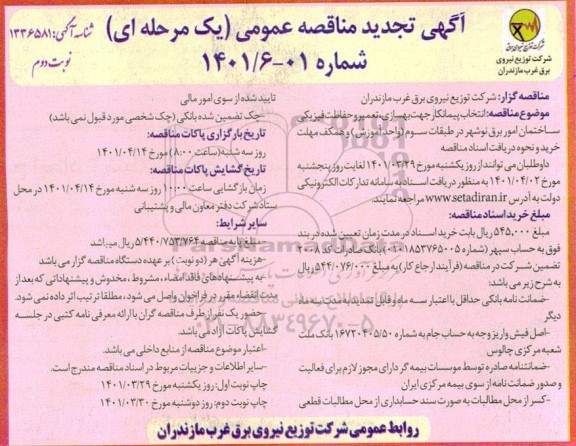 آگهی تجدید مناقصه عمومی (یک مرحله ای)
شماره ۰۱-۱۴۰۱/۶
شناسه آگهی: ۱۳۳۶۵۸۱
نوبت دوم
شرکت توزیع نیروی برق
شرکت توزیع نیروی
برق غرب مازندران
مناقصه گزار: شرکت توزیع نیروی برق غرب مازندران
موضوع مناقصه: انتخاب پیمانکار جهت بهسازی، تعمیر و حفاظت فیزیکی
ساختمان امور برق نوشهر در طبقات سوم (واحد آموزش) و همکف مهلت
خرید و نحوه دریافت اسناد مناقصه
داوطلبان می توانند از روز یکشنبه مورخ ۱۴۰۱/۰۳/۲۹ لغایت روز پنجشنبه
مورخ ۱۴۰۱/۰۴/۰۲ به منظور دریافت اسناد به سامانه تدارکات الکترونیکی
دولت به آدرس www.setadiran.ir مراجعه نمایند.
مبلغ خرید اسناد مناقصه:
مبلغ ۵۴۵,۰۰۰ ریال بابت خرید اسناد در مدت زمان تعیین شده در بند
فوق به حساب سپهر (شماره ۰۱۰۱۸۵۳۷۶۵۰۰۵) بانک صادرات کد ۴۰۰۸
تضمین شرکت در مناقصه (فرآیند ارجاع کار) به مبلغ ۵۴۴/۰۷۶/۰۰۰ ریال
به شرح زیر می باشد:
-ضمانت نامه بانکی حداقل با اعتبار سه ماه و قابل تمدید به مدت سه ماه
دیگر
-اصل فیش واریز وجه به حساب جام به شماره ۱۶۷۲۰۴۰۵/۵۰ بانک ملت
شعبه مرکزی چالوس
-ضمانتنامه صادره توسط موسسات بیمه گر دارای مجوز لازم برای فعالیت
و صدور ضمانت نامه از سوی بیمه مرکزی ایران
-کسر از محل مطالبات به صورت سند حسابداری از محل مطالبات قطعی
تایید شده از سوی امور مالی
-چک تضمین شده بانکی (چک شخصی مورد قبول نمی باشد)
تاریخ بارگزاری پاکات مناقصه:
روز سه شنبه (ساعت ۸:۰۰) مورخ ۱۴۰۱/۰۴/۱۴
تاریخ گشایش پاکات مناقصه:
زمان بازگشایی ساعت ۱۰:۰۰ روز سه شنبه مورخ ۱۴۰۱/۰۴/۱۴ در محل
ستاد شرکت دفتر معاون مالی و پشتیبانی
سایر شرایط:
مبلغ پایه مناقصه ۵/۴۴۰/۷۵۳/۷۶۴ ریال میباشد
-هزینه آگهی هر (دو نوبت) بر عهده دستگاه مناقصه گزار می باشد
-به پیشنهادهای فاقد امضاء، مشروط، مخدوش و پیشنهاداتی که بعد از
مدت انقضاء مقرر در فراخوان واصل می شود، مطلقا ترتیب اثر داده نمی شود.
-حضور یک نفر از طرف مناقصه گران با ارائه معرفی نامه کتبی در جلسه
گشایش پاکات آزاد می باشد.
-اعتبار موضوع مناقصه از منابع داخلی می باشد.
-سایر اطلاعات و جزییات مربوط در اسناد مناقصه مندرج است.
چاپ نوبت اول: روز یکشنبه مورخ ۱۴۰۱/۰۳/۲۹
چاپ نوبت دوم: روز دوشنبه مورخ ۱۴۰۱/۰۳/۳۰
روابط عمومی شرکت توزیع نیروی برق غرب مازندران